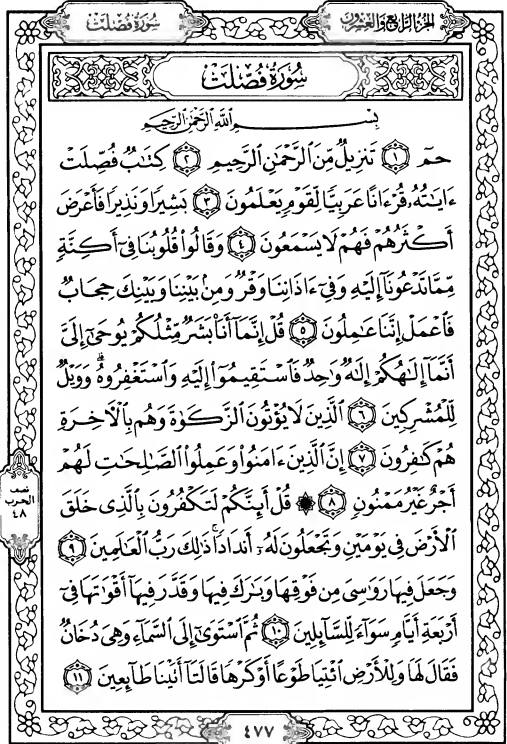 الجزء الرابع والعشرون
سورة فصلت
سُورَةُ فُصِّلَتْ
بِسْمِ اللَّهِ الرَّحْمَٰنِ الرَّحِيمِ
حمٓ ١ تَنزِيلٌ مِّنَ الرَّحْمَٰنِ الرَّحِيمِ ٢ كِتَٰبٌ فُصِّلَتْ
ءَايَٰتُهُۥ قُرْءَانًا عَرَبِيًّا لِّقَوْمٍ يَعْلَمُونَ ٣ بَشِيرًا وَنَذِيرًا فَأَعْرَضَ
أَكْثَرُهُمْ فَهُمْ لَا يَسْمَعُونَ ٤ وَقَالُوا۟ قُلُوبُنَا فِىٓ أَكِنَّةٍ
مِّمَّا تَدْعُونَآ إِلَيْهِ وَفِىٓ ءَاذَانِنَا وَقْرٌ وَمِنۢ بَيْنِنَا وَبَيْنِكَ حِجَابٌ
فَٱعْمَلْ إِنَّنَا عَٰمِلُونَ ٥ قُلْ إِنَّمَآ أَنَا۠ بَشَرٌ مِّثْلُكُمْ يُوحَىٰٓ إِلَىَّ
أَنَّمَآ إِلَٰهُكُمْ إِلَٰهٌ وَٰحِدٌ فَٱسْتَقِيمُوٓا۟ إِلَيْهِ وَٱسْتَغْفِرُوهُ ۗ وَوَيْلٌ
لِّلْمُشْرِكِينَ ٦ ٱلَّذِينَ لَا يُؤْتُونَ ٱلزَّكَوٰةَ وَهُم بِٱلْءَاخِرَةِ
هُمْ كَٰفِرُونَ ٧ إِنَّ ٱلَّذِينَ ءَامَنُوا۟ وَعَمِلُوا۟ ٱلصَّٰلِحَٰتِ لَهُمْ
أَجْرٌ غَيْرُ مَمْنُونٍ ٨ ۞ قُلْ أَئِنَّكُمْ لَتَكْفُرُونَ بِٱلَّذِى خَلَقَ
ٱلْأَرْضَ فِى يَوْمَيْنِ وَتَجْعَلُونَ لَهُۥٓ أَندَادًا ۚ ذَٰلِكَ رَبُّ ٱلْعَٰلَمِينَ ٩
وَجَعَلَ فِيهَا رَوَٰسِىَ مِن فَوْقِهَا وَبَٰرَكَ فِيهَا وَقَدَّرَ فِيهَآ أَقْوَٰتَهَا فِىٓ
أَرْبَعَةِ أَيَّامٍ سَوَآءً لِّلسَّآئِلِينَ ١٠ ثُمَّ ٱسْتَوَىٰٓ إِلَى ٱلسَّمَآءِ وَهِىَ دُخَانٌ
فَقَالَ لَهَا وَلِلْأَرْضِ ٱئْتِيَا طَوْعًا أَوْ كَرْهًا قَالَتَآ أَتَيْنَا طَآئِعِينَ ١١
نصف
الحزب
٤٨
٤٧٧